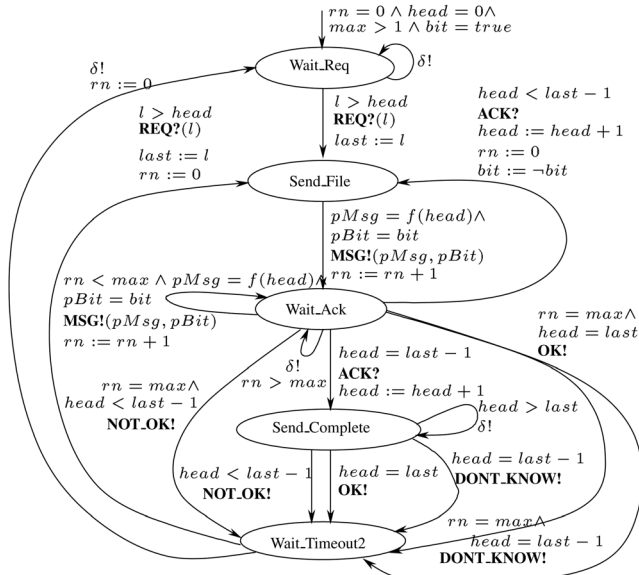 rn = 0 ∧ head = 0∧
max > 1 ∧ bit = true
Wait_Req
δ!
δ!
rn := 0
l > head
REQ?(l)
last := l
rn := 0
l > head
REQ?(l)
last := l
head < last − 1
ACK?
head := head + 1
rn := 0
bit := ¬bit
Send_File
pMsg = f(head)∧
pBit = bit
MSG!(pMsg, pBit)
rn := rn + 1
rn < max ∧ pMsg = f(head)∧
pBit = bit
MSG!(pMsg, pBit)
rn := rn + 1
Wait_Ack
δ!
rn > max
head = last − 1
ACK?
head := head + 1
rn = max∧
head = last
OK!
rn = max∧
head < last − 1
NOT_OK!
Send_Complete
head > last
δ!
head < last − 1
NOT_OK!
head = last
OK!
head = last − 1
DONT_KNOW!
Wait_Timeout2
rn = max∧
head = last − 1
DONT_KNOW!